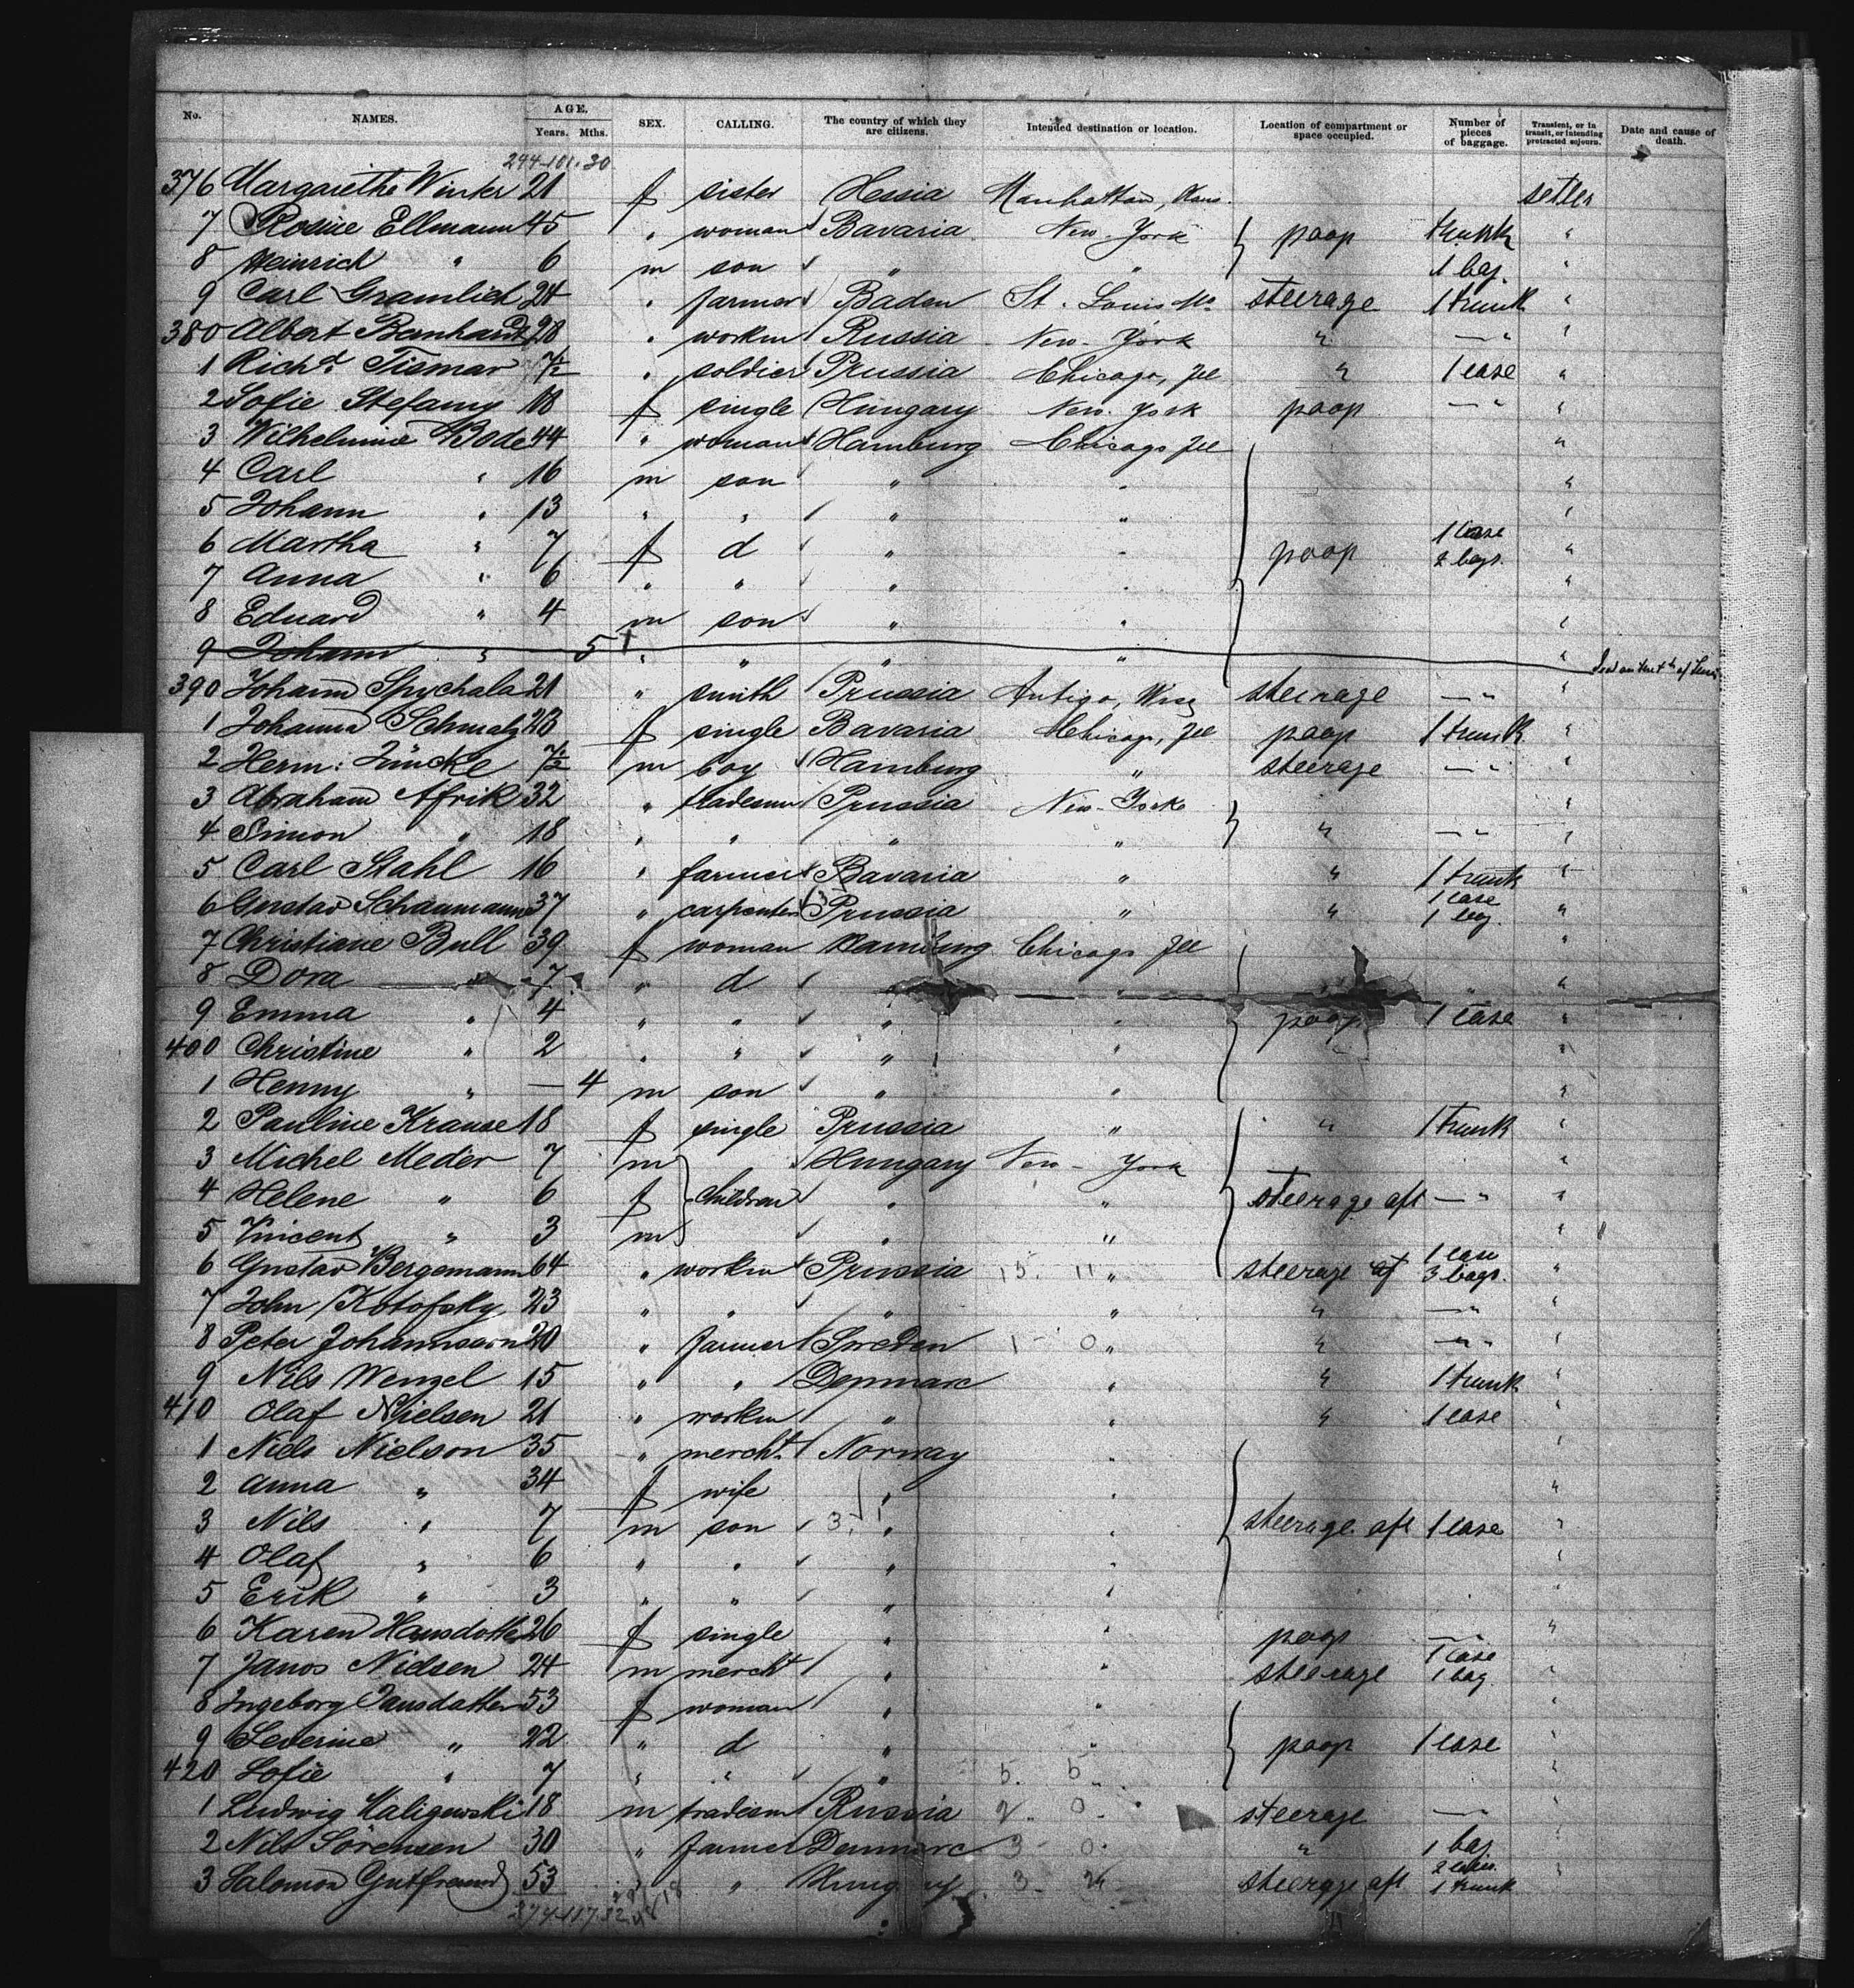 No. NAMES. AGE. Years. Mths. SEX. CALLING. The country of which they are citizens. Intended destination or location. Location of compartment or space occupied. Number of pieces of baggage. Transient, or in transit, or intending protracted sojourn. Date and cause of death.
244-101-30
376 Margarethe Winter 21 f sister Hessia Manhattan, Kans. settler
7 Rosine Ellmann 45 " woman Bavaria New-York poop trunk "
8 Heinrich " 6 m son " " 1 bag. "
9 Carl Gramlich 24 " farmer Baden St. Louis Mo steerage 1 trunk "
380 Albert Bernhardt 28 " workm Russia New-York " — " "
1 Richd. Tismar 7½ " soldier Prussia Chicago, Ill " 1 case "
2 Sofie Stefany 18 f single Hungary New-York poop — " "
3 Wilhelmine Bode 44 " woman Hamburg Chicago Ill "
4 Carl " 16 m son " " "
5 Johann " 13 " " " " "
6 Martha " 7 f d " " poop 1 case 2 bags. "
7 Anna " 6 " " " " "
8 Eduard " 4 m son " " "
9 Johann " 5 " " " " "
390 Johann Spychala 21 " smith Prussia Antigo, Wisc steerage — " "
1 Johanna Schmalz 23 f single Bavaria Chicago, Ill poop 1 trunk "
2 Herm: Lüncke 7½ m boy Hamburg " steerage — " "
3 Abraham Afrik 32 " tradesman Prussia New-York "
4 Simon " 18 " " " " " — " "
5 Carl Stahl 16 " farmer Bavaria " " 1 trunk "
6 Gustav Schaumann 37 " carpenter Prussia " " 1 case 1 bag. "
7 Christiane Bull 39 f woman Hamburg Chicago Ill "
8 Dora " 7 " d " " "
9 Emma " 4 " " " " poop 1 case "
400 Christine " 2 " " " " "
1 Henny " — 4 m son " " "
2 Pauline Krause 18 f single Prussia " " 1 trunk "
3 Michel Meder 7 m Hungary New-York "
4 Helene " 6 f children " " steerage aft — " "
5 Vincent " 3 m " " "
6 Gustav Bergemann 64 " workm Prussia 15. 11 " steerage aft 1 case 3 bags. "
7 John Kotofsky 23 " " " " " — " "
8 Peter Johannson 20 " farmer Sweden 1 - 0 " " — " "
9 Nils Wenzel 15 " " Denmarc " " 1 trunk "
410 Olaf Nielsen 21 " workm " " " 1 case "
1 Niels Nielson 35 " mercht. Norway " "
2 Anna " 34 f wife " " "
3 Nils " 7 m son 3. 1 " " steerage aft 1 case "
4 Olaf " 6 " " " " "
5 Erik " 3 " " " " "
6 Karen Hansdotter 26 f single " " poop — " "
7 Janos Nielsen 24 m mercht " " steerage 1 case 1 bag "
8 Ingeborg Jansdatter 53 f woman " " "
9 Severine " 22 " d " " poop 1 case "
420 Sofie " 7 " " " 5. 5 " "
1 Ludwig Kaligowski 18 m tradesm Russia 2. 0 steerage — " "
2 Nils Sörensen 30 " farmer Denmarc 3 - 0 " 1 bag. "
3 Salomon Gutfreund 53 " " Hungary 3 - 24 steerage aft 1 trunk "